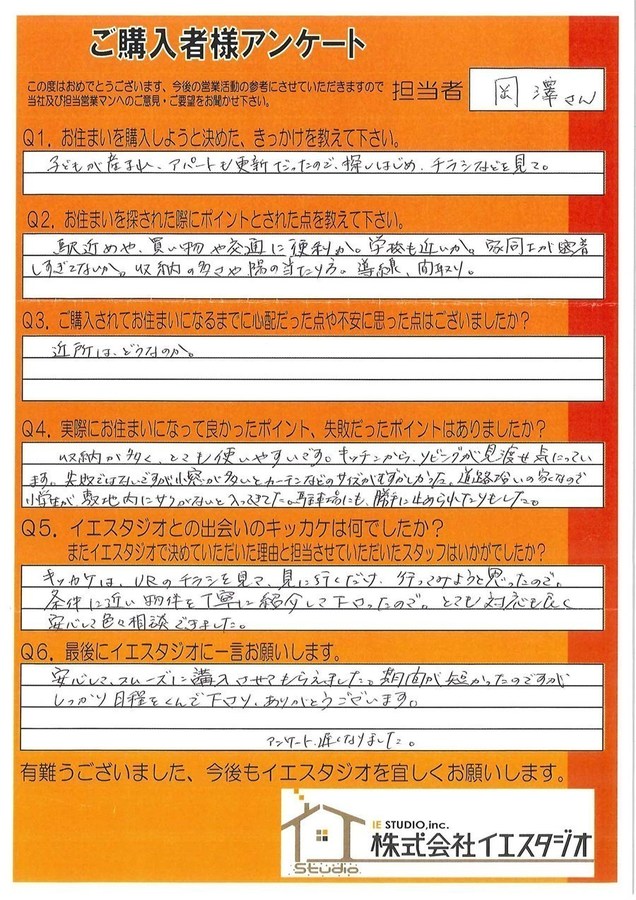 ご購入者様アンケート
この度はおめでとうございます、今後の営業活動の参考にさせていただきますので
当社及び担当営業マンへのご意見・ご要望をお聞かせ下さい。
担当者 岡澤さん
Q1. お住まいを購入しようと決めた、きっかけを教えて下さい。
子どもが産まれ、アパートも更新だったので、探しはじめ、チラシなどを見て。
Q2. お住まいを探された際にポイントとされた点を教えて下さい。
駅近めや、買い物や交通に便利か。学校も近いか。家同士が密着
しすぎてないか。収納の多さや陽の当たり方。導線、間取り。
Q3. ご購入されてお住まいになるまでに心配だった点や不安に思った点はございましたか?
近所は、どうなのか。
Q4. 実際にお住まいになって良かったポイント、失敗だったポイントはありましたか?
収納が多く、とても使いやすいです。キッチンから、リビングが見渡せ点になってい
ます。失敗ではないですが小窓が多いとカーテンなどのサイズがむずかしかった。道路沿いの家なので
小学生が敷地内にサクがないと入ってきてた。駐車場にも、勝手に止められたりもした。
Q5. イエスタジオとの出会いのキッカケは何でしたか?
またイエスタジオで決めていただいた理由と担当させていただいたスタッフはいかがでしたか?
キッカケは、URのチラシを見て、見に行くだけ、行ってみようと思ったので。
条件に近い物件を丁寧に紹介して下さったので。とても対応も良く
安心して色々相談できました。
Q6. 最後にイエスタジオに一言お願いします。
安心して、スムーズに購入させてもらえました。期間が短かったのですが
しっかり日程をくんで下さり、ありがとうございます。
アンケート、遅くなりました。
有難うございました、今後もイエスタジオを宜しくお願いします。
IE STUDIO,inc.
株式会社イエスタジオ
Studio